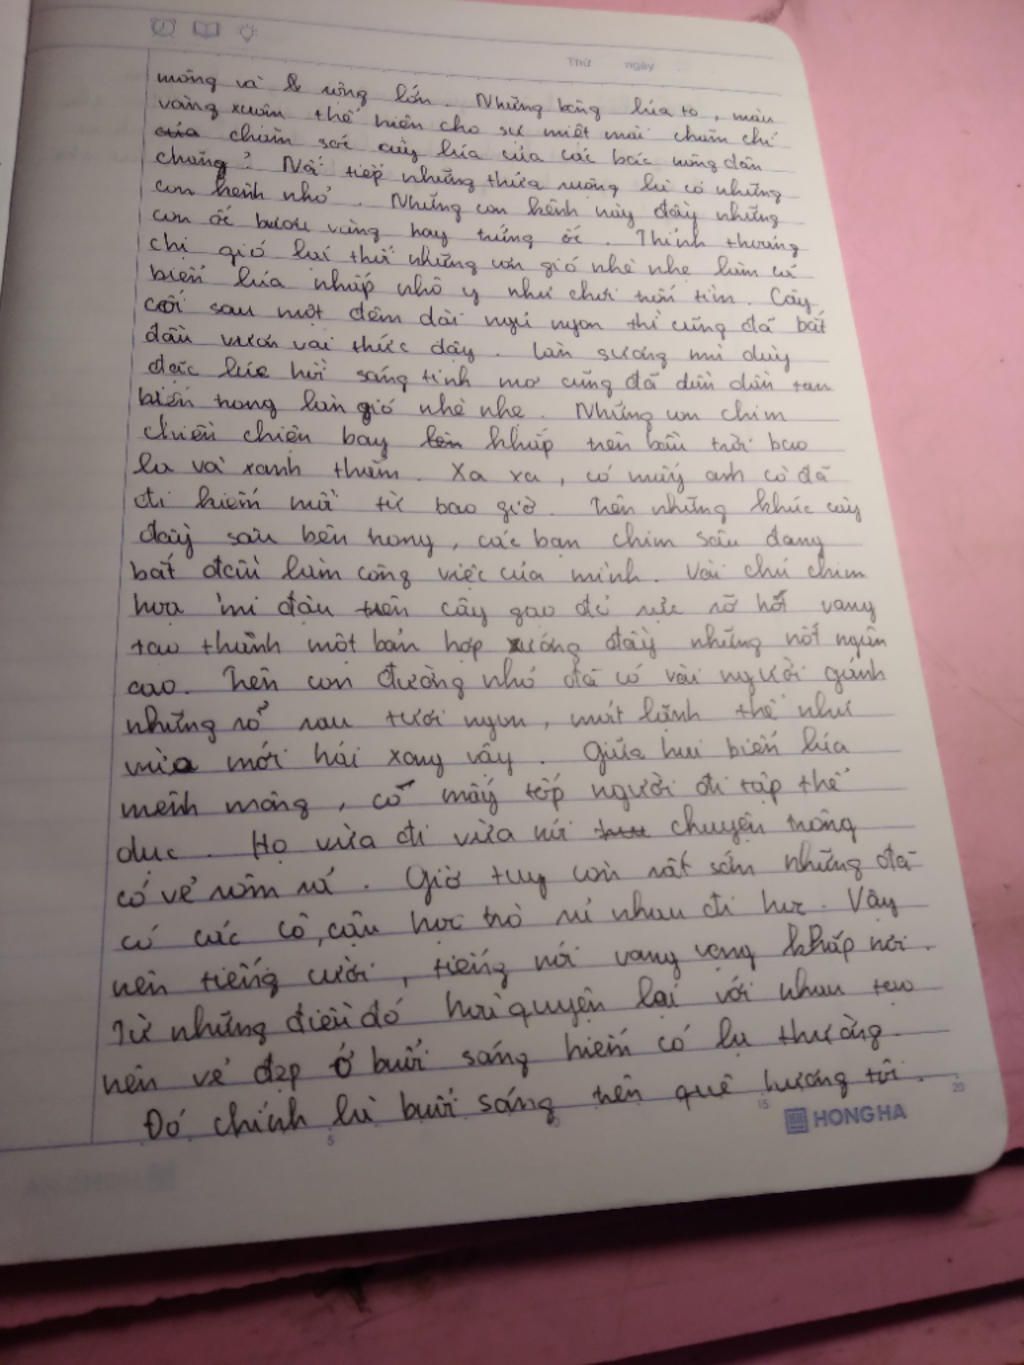 Thứ ngày
mông và rộng lớn. Những bông lúa to, màu
vàng xuộm thể hiện cho sự miệt mài chăm chỉ
chăm sóc cây lúa của các bác nông dân
chăng? Nối tiếp những thửa ruộng là có những
con kênh nhỏ. Những con kênh này đầy những
con ốc bươu vàng hay trứng ốc. Thỉnh thoảng
chị gió lại thổi những cơn gió nhè nhẹ làm cả
biển lúa nhấp nhô y như chơi trốn tìm. Cây
cối sau một đêm dài ngủ ngon thì cũng đã bắt
đầu vươn vai thức dậy. Làn sương mù dày
đặc lúc hửi sáng tinh mơ cũng đã dần dần tan
biến trong làn gió nhè nhẹ. Những con chim
chiền chiện bay khắp trên bầu trời bao
la và xanh thẳm. Xa xa, có mấy anh cò đã
đi kiếm mồi từ bao giờ. Trên những khúc cây
đầy sâu bên trong, các bạn chim sâu đang
bắt đầu làm công việc của mình. Vài chú chim
họa mi đậu trên cây gạo đỏ rực rỡ hót vang
tạo thành một bản hợp xướng đầy những nốt ngân
cao. Trên con đường nhỏ đã có vài người gánh
những rổ rau tươi ngon, mát lành thể như
vừa mới hái xong vậy. Giữa hai biển lúa
mênh mông, có mấy tốp người đi tập thể
dục. Họ vừa đi vừa nói chuyện trông
có vẻ rôm rả. Giờ tuy còn rất sớm nhưng đã
có các cô, cậu học trò rủ nhau đi học. Vậy
nên tiếng cười, tiếng nói vang vọng khắp nơi.
Từ những điều đó hòa quyện lại với nhau tạo
nên vẻ đẹp ở buổi sáng hiếm có lạ thường.
Đó chính là buổi sáng trên quê hương tôi.
5 10 15 20
HONG HA